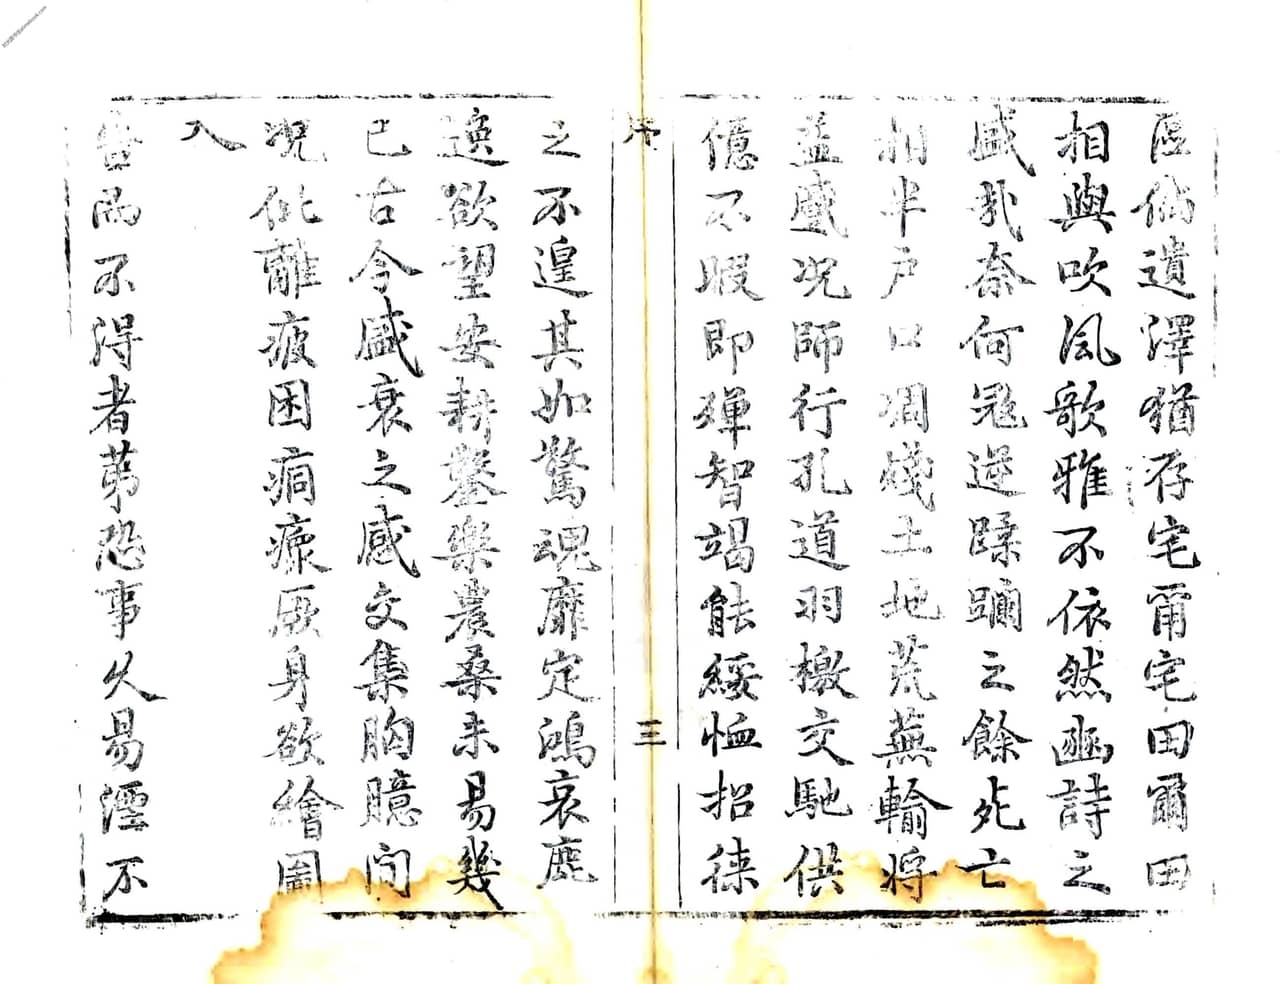 區倘遺澤猶存宅爾宅田爾田
相與吹風歌雅不依然豳詩之
盛哉奈何冦逆蹂躪之餘死亡
相半户口凋殘土地荒蕪輸将
益蹙况師行孔道羽檄交馳供
億不暇即殫智竭能綏恤招徕
序
三
之不遑其如驚魂靡定鴻哀鹿
逸欲望安耕鑿樂農桑未易幾
已古今盛衰之感交集胸臆间
况仳離疲困痌瘝厥身欲繪圖
入
告而不得者苐恐事久易湮不